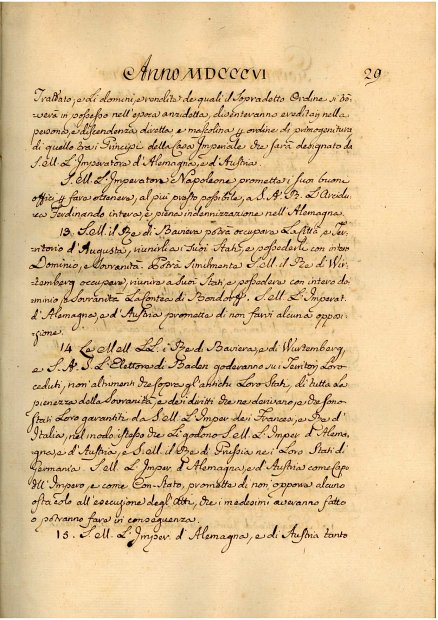 Anno MDCCCVI 29
Trattato, e di domini, e rendita de quali il Sopradetto Ordine si tro-
verà in possesso nell'epoca anzidetta, diventeranno ereditarj nella
persona, e discendenza diretta e mascolina p ordine di primogenitura
di quello tra i Principi della Casa Imperiale che sarà designato da
S. M. L'Imperatore d'Alemagna, e d'Austria.
S. M. L'Imperatore Napoleone promette i suoi buoni
officj p fare ottenere, al più presto possibile, a S. A. R. L'Arcidu-
co Ferdinando intera, e piena indennizzazione nell'Alemagna.
13. S. M. il Re di Baviera potrà occupare La Città, e Ter-
ritorio d'Augusta, riunirli a' Suoi Stati, e possederli con intero
Dominio, e Sovranità. Potrà Similmente S. M. il Re di Wur-
temberg occupare, riunire a' Suoi Stati, e possedere con intero do-
minio, e Sovranità La Contea di Bondorff. S. M. L'Imperat.
d'Alemagna, e d'Austria promette di non farvi alcuna oppo-
sizione.
14. Le M. M. L. L. i Re di Baviera, e di Wurtemberg,
e S. A. S. L'Elettore di Baden goderanno su i Territorj Loro
ceduti, non altrimenti che sopra gl'antichi Loro Stati, di tutta la
pienezza della Sovranità, e dei diritti che ne derivano, e che sono
Stati Loro garantiti da S. M. L'Imper. dei Francesi, e Re d'
Italia, nel modo istesso che Li godono S. M. L'Imper. d'Alema-
gna, e d'Austria, e S. M. il Re di Prussia ne i Loro Stati di
Germania. S. M. L'Imper. d'Alemagna, e d'Austria come Capo
dell'Impero, e come Con-Stato, promette di non opporre alcuno
ostacolo all'esecuzione degl'Atti, che i medesimi averanno fatto
o potranno fare in conseguenza.
15. S. M. L'Imper. d'Alemagna, e di Austria tanto